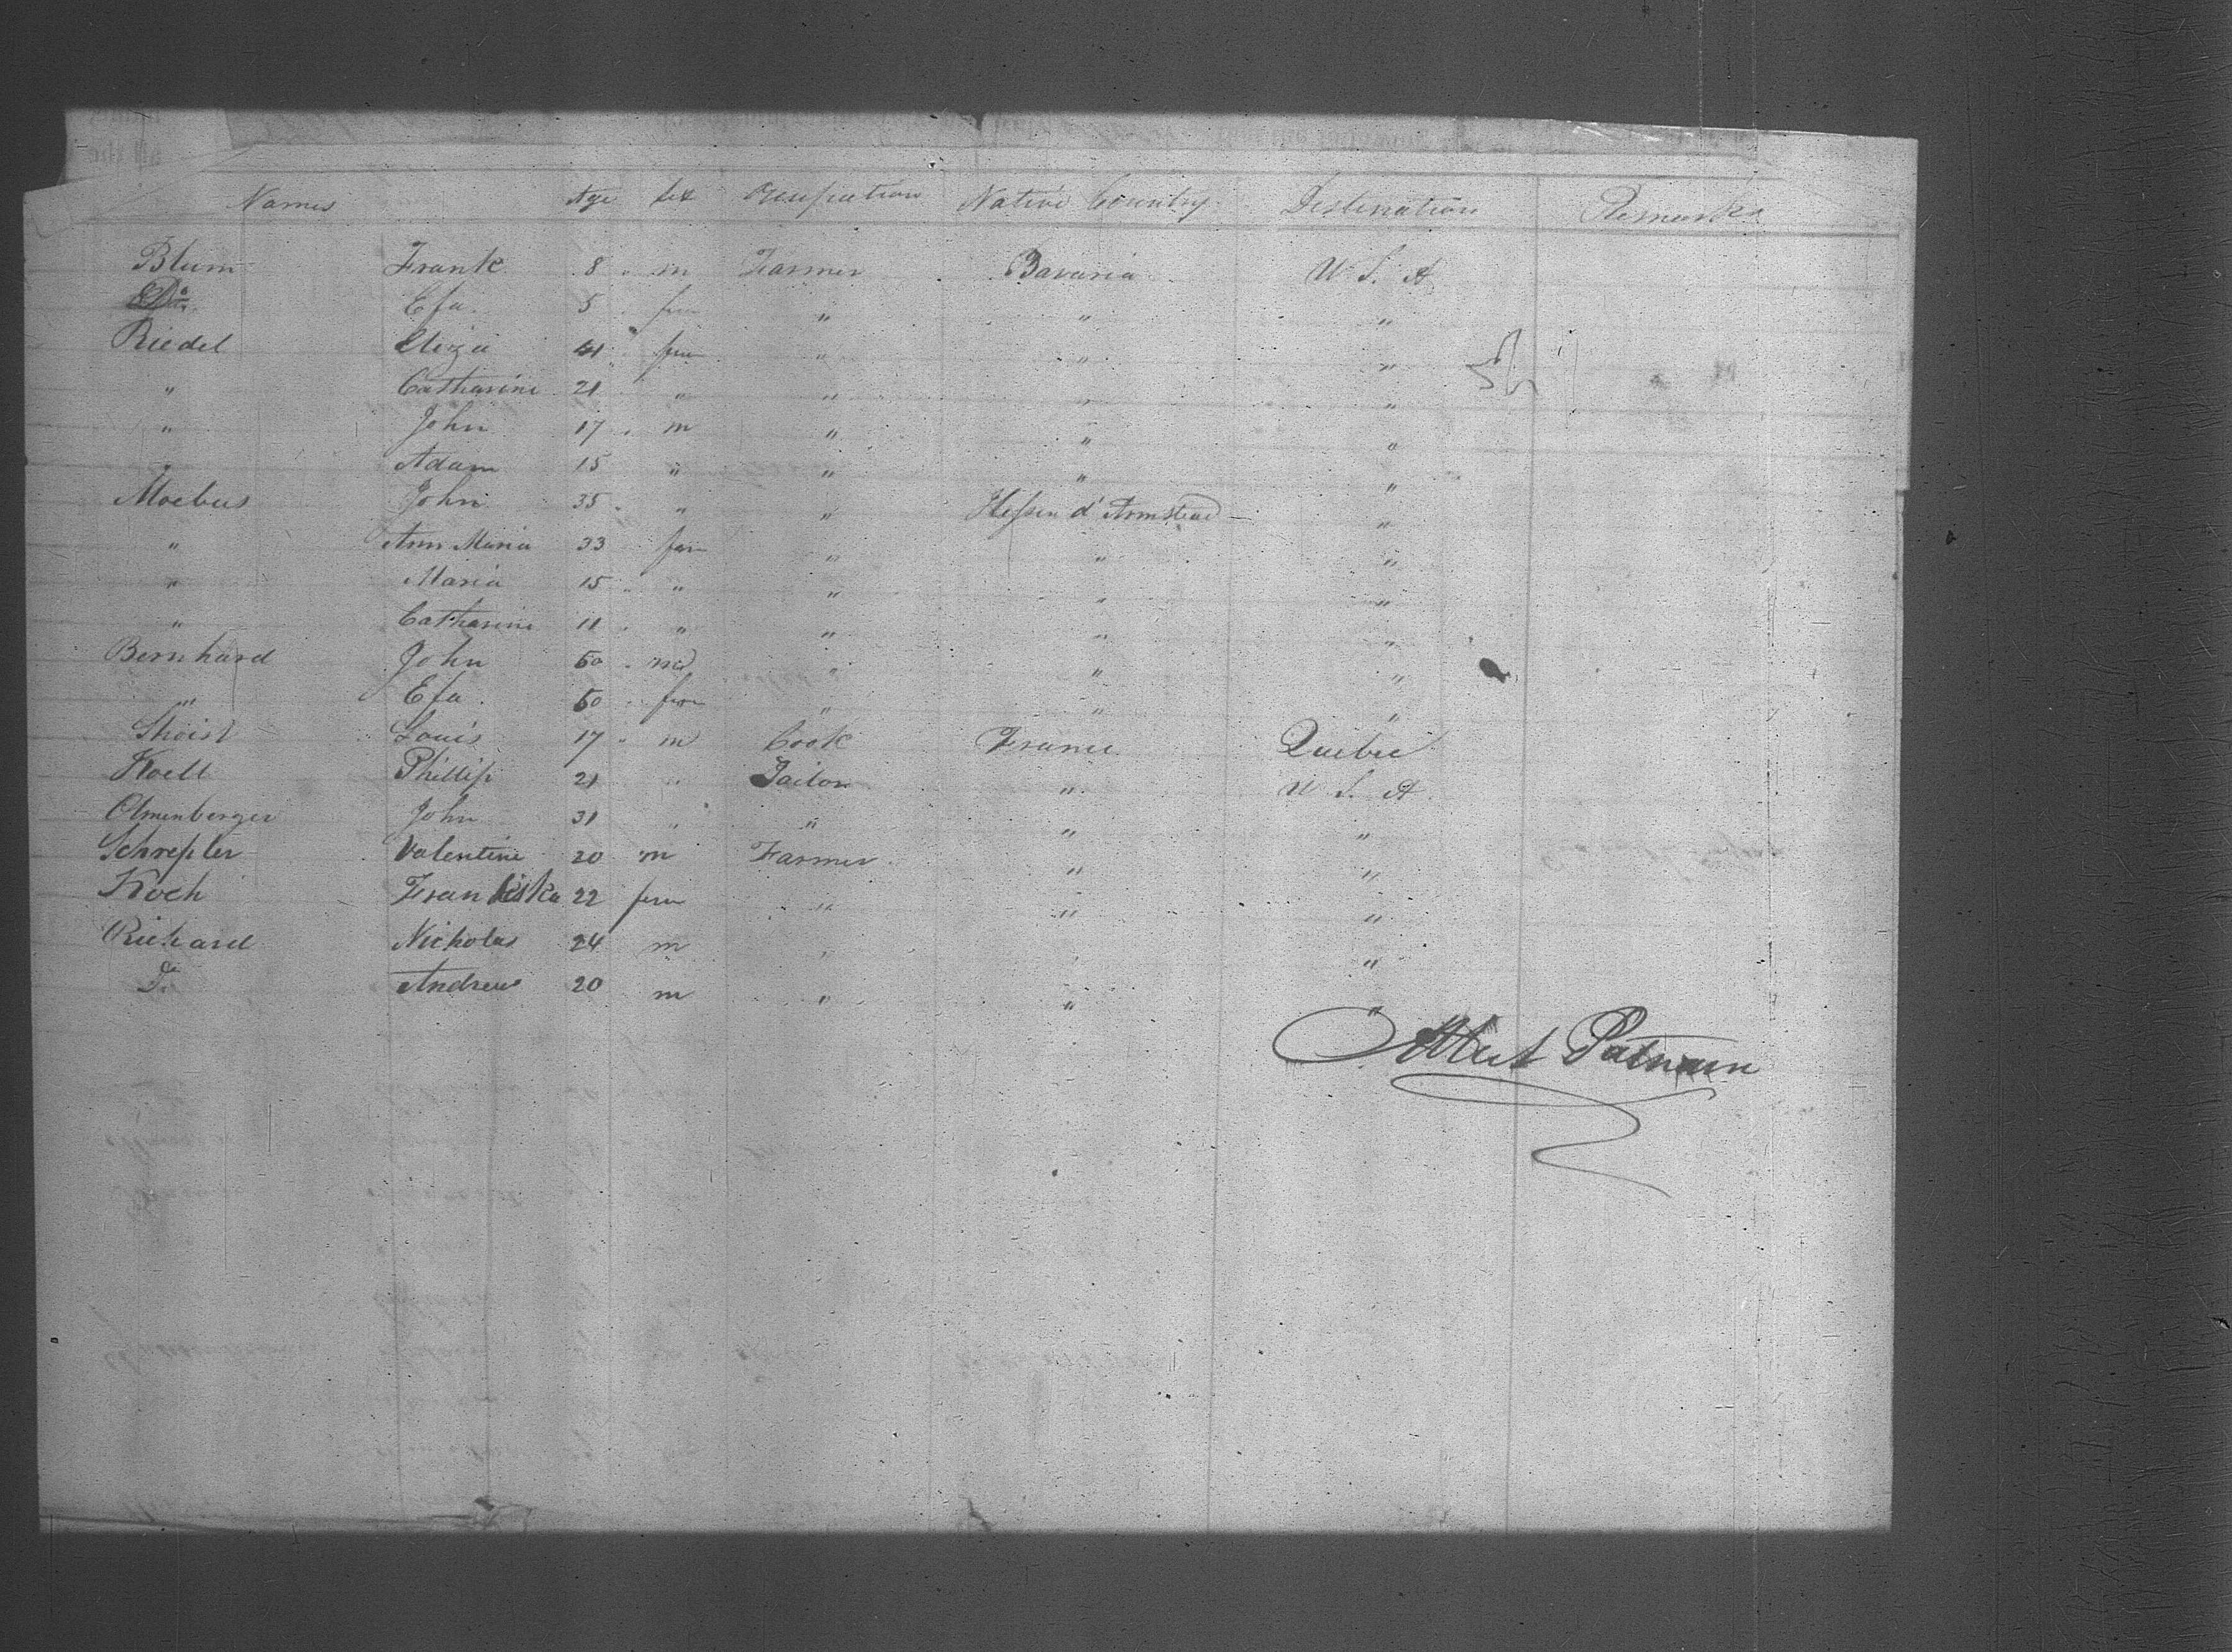 Names Age Sex Occupation Native Country Destination Remarks
Blum Frank 8 " m Farmer Bavaria U. S. A
Do Efa. 5 " fem " " "
Riedel Eliza 41 " fem " " "
" Catharine 21 " " " "
" John 17 " m " " "
" Adam 15 " " " "
Moebus John 35 " " " Hessen d'Armstead "
" Ann Maria 33 fem " " "
" Maria 15 " " " " "
" Catharine 11 " " " " "
Bernhard John 50 " m " " "
" Efa. 50 " fem " " "
Louis 17 " m Cook France Quebec
Phillip 21 " Tailor " U. S. A
Olmenberger John 31 " " " "
Schrepler Valentine 20 m Farmer " "
Koch Franziska 22 fem " " "
Richard Nicholas 24 m " " "
Do Andrew 20 m " " "
Albert Putnam